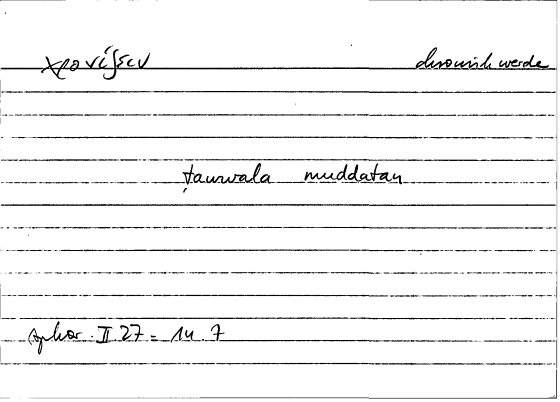 χρονίζειν chronisch werde
ṭawwala muddatan
Aphor. II 27 = 14. 7